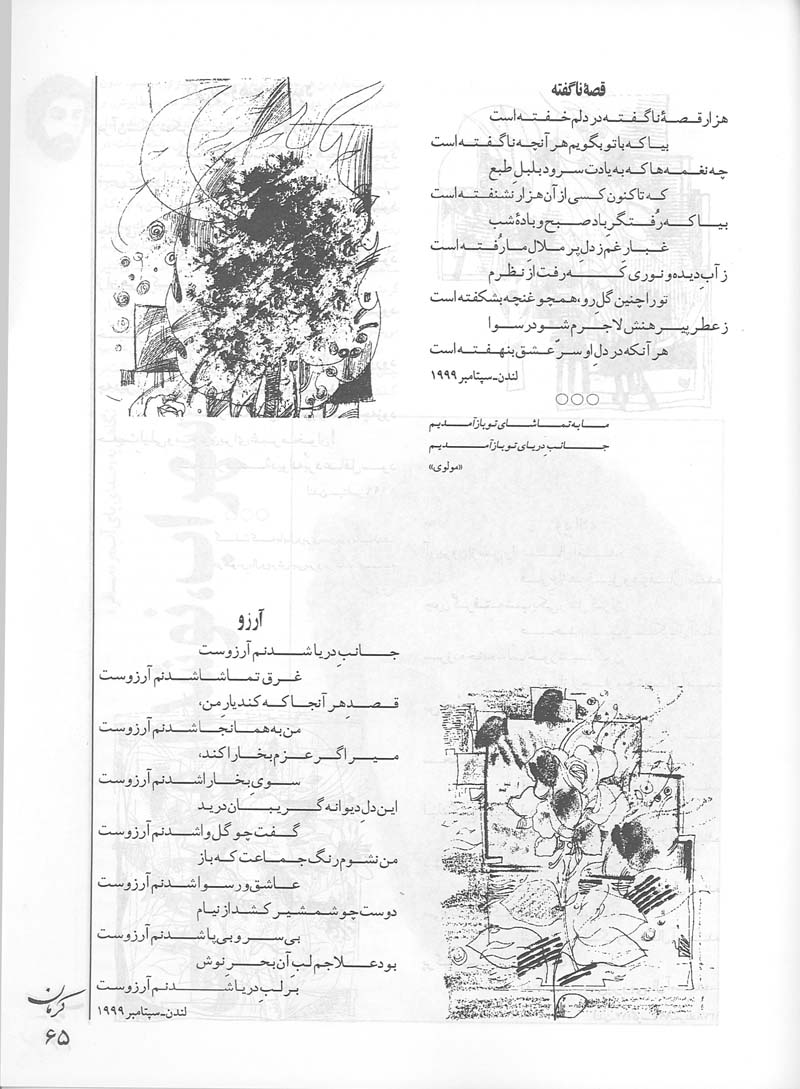 قصهٔ ناگفته
هزار قصهٔ ناگفته در دلم خفته است
بیا که با تو بگویم هر آنچه ناگفته است
چه نغمه‌ها که به یادت سرود بلبلِ طبع
که تاکنون کسی از آن هزار نشنفته است
بیا که رُفتگرِ باد صبح و بادهٔ شب
غبار غم ز دلِ پر ملالِ ما رُفته است
ز آبِ دیده و نوری که رفت از نظرم
تو را چنین گلِ رو، همچو غنچه بشکفته است
ز عطر پیرهنش لاجرم شود رسوا
هر آنکه در دلِ او سرّ عشق بنهفته است
لندن-سپتامبر ۱۹۹۹
ما به تماشای تو باز آمدیم
جانبِ دریای تو باز آمدیم
«مولوی»
آرزو
جانبِ دریا شدنم آرزوست
غرق تماشا شدنم آرزوست
قصدِ هر آنجا که کند یارِ من،
من به همانجا شدنم آرزوست
میر اگر عزم بخارا کند،
سوی بخارا شدنم آرزوست
این دل دیوانه گریبان درید
گفت چو گل وا شدنم آرزوست
من نشوم رنگ جماعت که باز
عاشق و رسوا شدنم آرزوست
دوست چو شمشیر کشد از نیام
بی‌سر و بی‌پا شدنم آرزوست
بود علاجم لبِ آن بحر نوش
بر لبِ دریا شدنم آرزوست
لندن-سپتامبر ۱۹۹۹
کرمان
۶۵